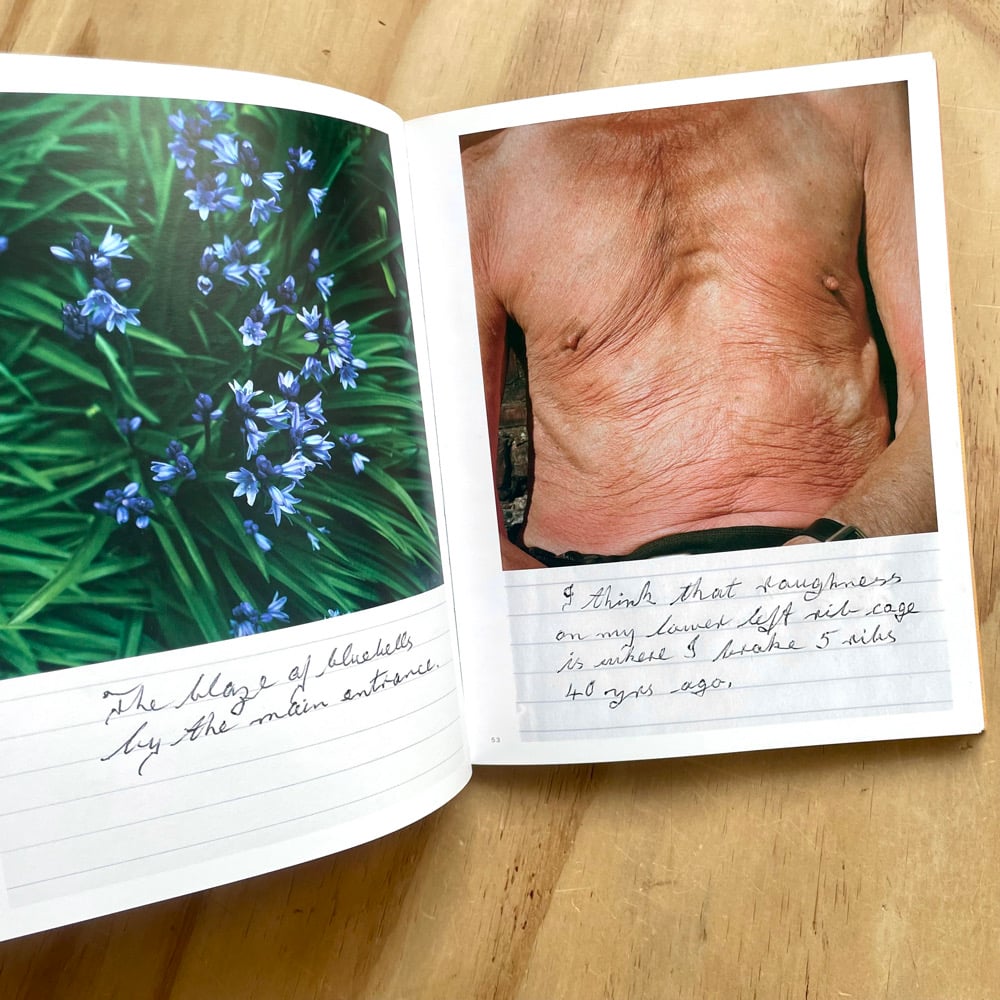 The blaze of bluebells
by the main entrance.
I think that roughness
on my lower left rib cage
is where I broke 5 ribs
40 yrs ago.
53